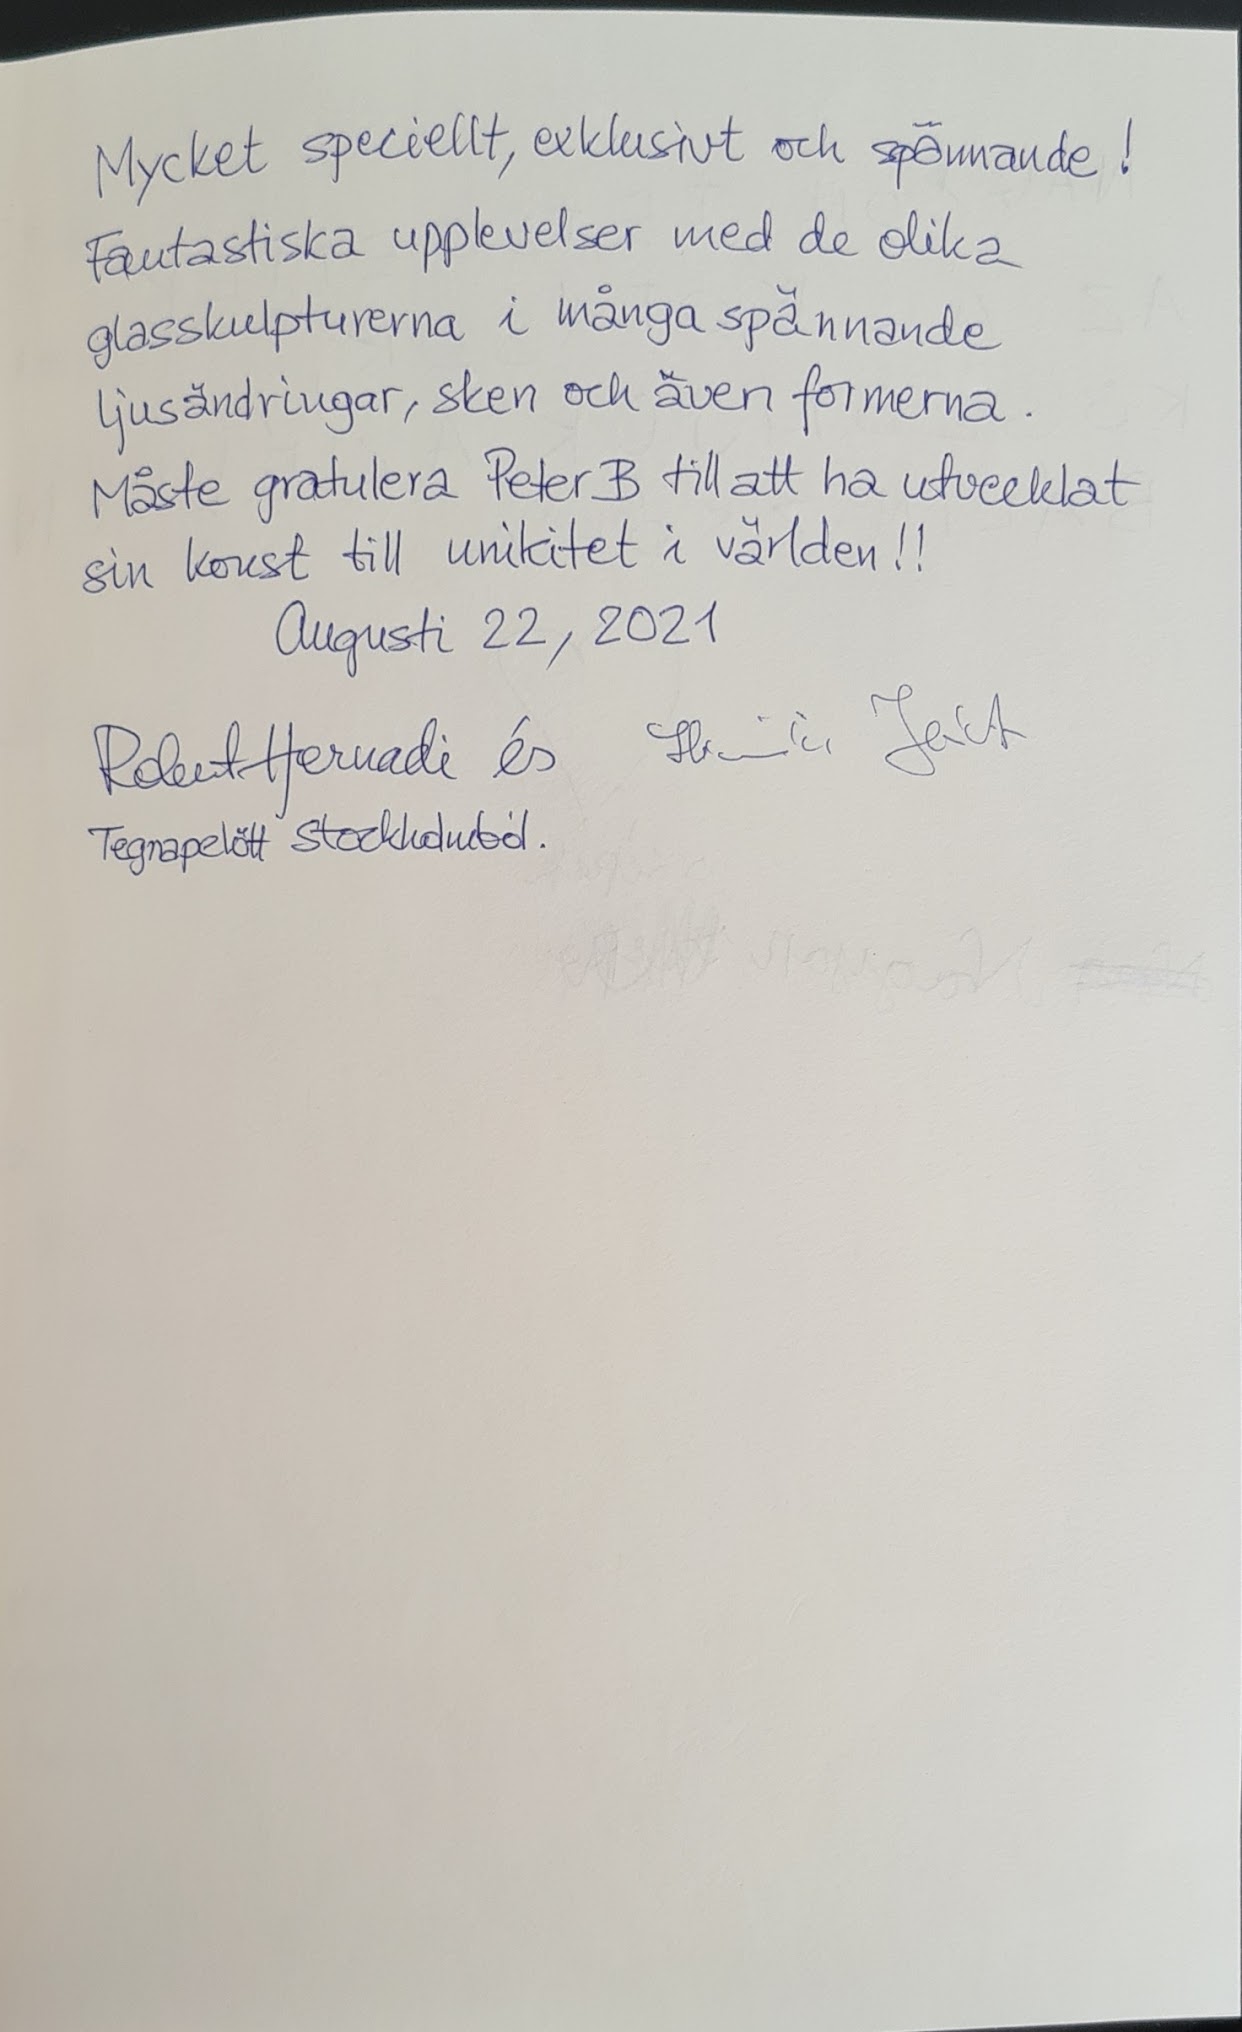 Mycket speciellt, exklusivt och spännande!
Fantastiska upplevelser med de olika
glasskulpturerna i många spännande
ljusändringar, sken och även formerna.
Måste gratulera Peter B till att ha utvecklat
sin konst till unikitet i världen!!
Augusti 22, 2021
Robert Hernadi és
Tegnapelött Stockholmból.